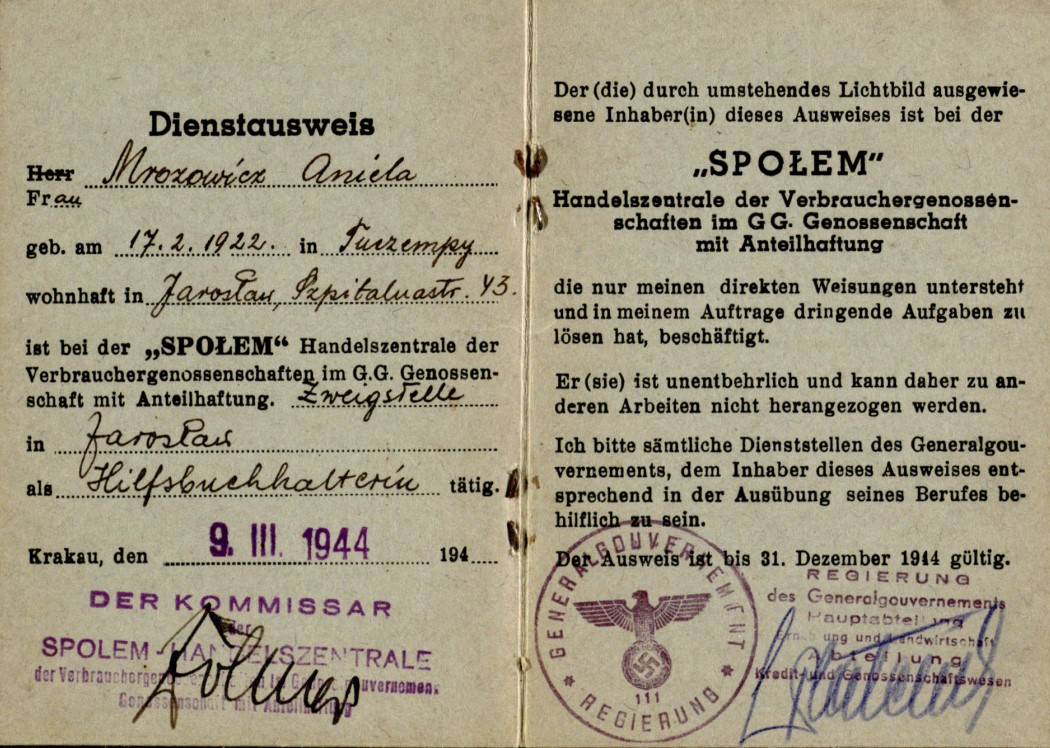 Dienstausweis
Herr Mrozowicz Aniela
Frau
geb. am 17.2.1922. in Tuczempy
wohnhaft in Jarosław, Szpitalnastr. 43.
ist bei der „SPOŁEM“ Handelszentrale der
Verbrauchergenossenschaften im G.G. Genossen-
schaft mit Anteilhaftung. Zweigstelle
in Jarosław
als Hilfsbuchhalterin tätig.
Krakau, den 9. III. 1944 194
DER KOMMISSAR
der
SPOLEM-HANDELSZENTRALE
Genossenschaft mit Anteilhaftung
Der (die) durch umstehendes Lichtbild ausgewie-
sene Inhaber(in) dieses Ausweises ist bei der
„SPOŁEM“
Handelszentrale der Verbrauchergenossen-
schaften im GG. Genossenschaft
mit Anteilhaftung
die nur meinen direkten Weisungen untersteht
und in meinem Auftrage dringende Aufgaben zu
lösen hat, beschäftigt.
Er (sie) ist unentbehrlich und kann daher zu an-
deren Arbeiten nicht herangezogen werden.
Ich bitte sämtliche Dienststellen des Generalgou-
vernements, dem Inhaber dieses Ausweises ent-
sprechend in der Ausübung seines Berufes be-
hilflich zu sein.
Der Ausweis ist bis 31. Dezember 1944 gültig.
GENERALGOUVERNEMENT
111
REGIERUNG
REGIERUNG
des Generalgouvernements
Hauptabteilung
Ernährung und Landwirtschaft
Abteilung
Kredit- und Genossenschaftswesen